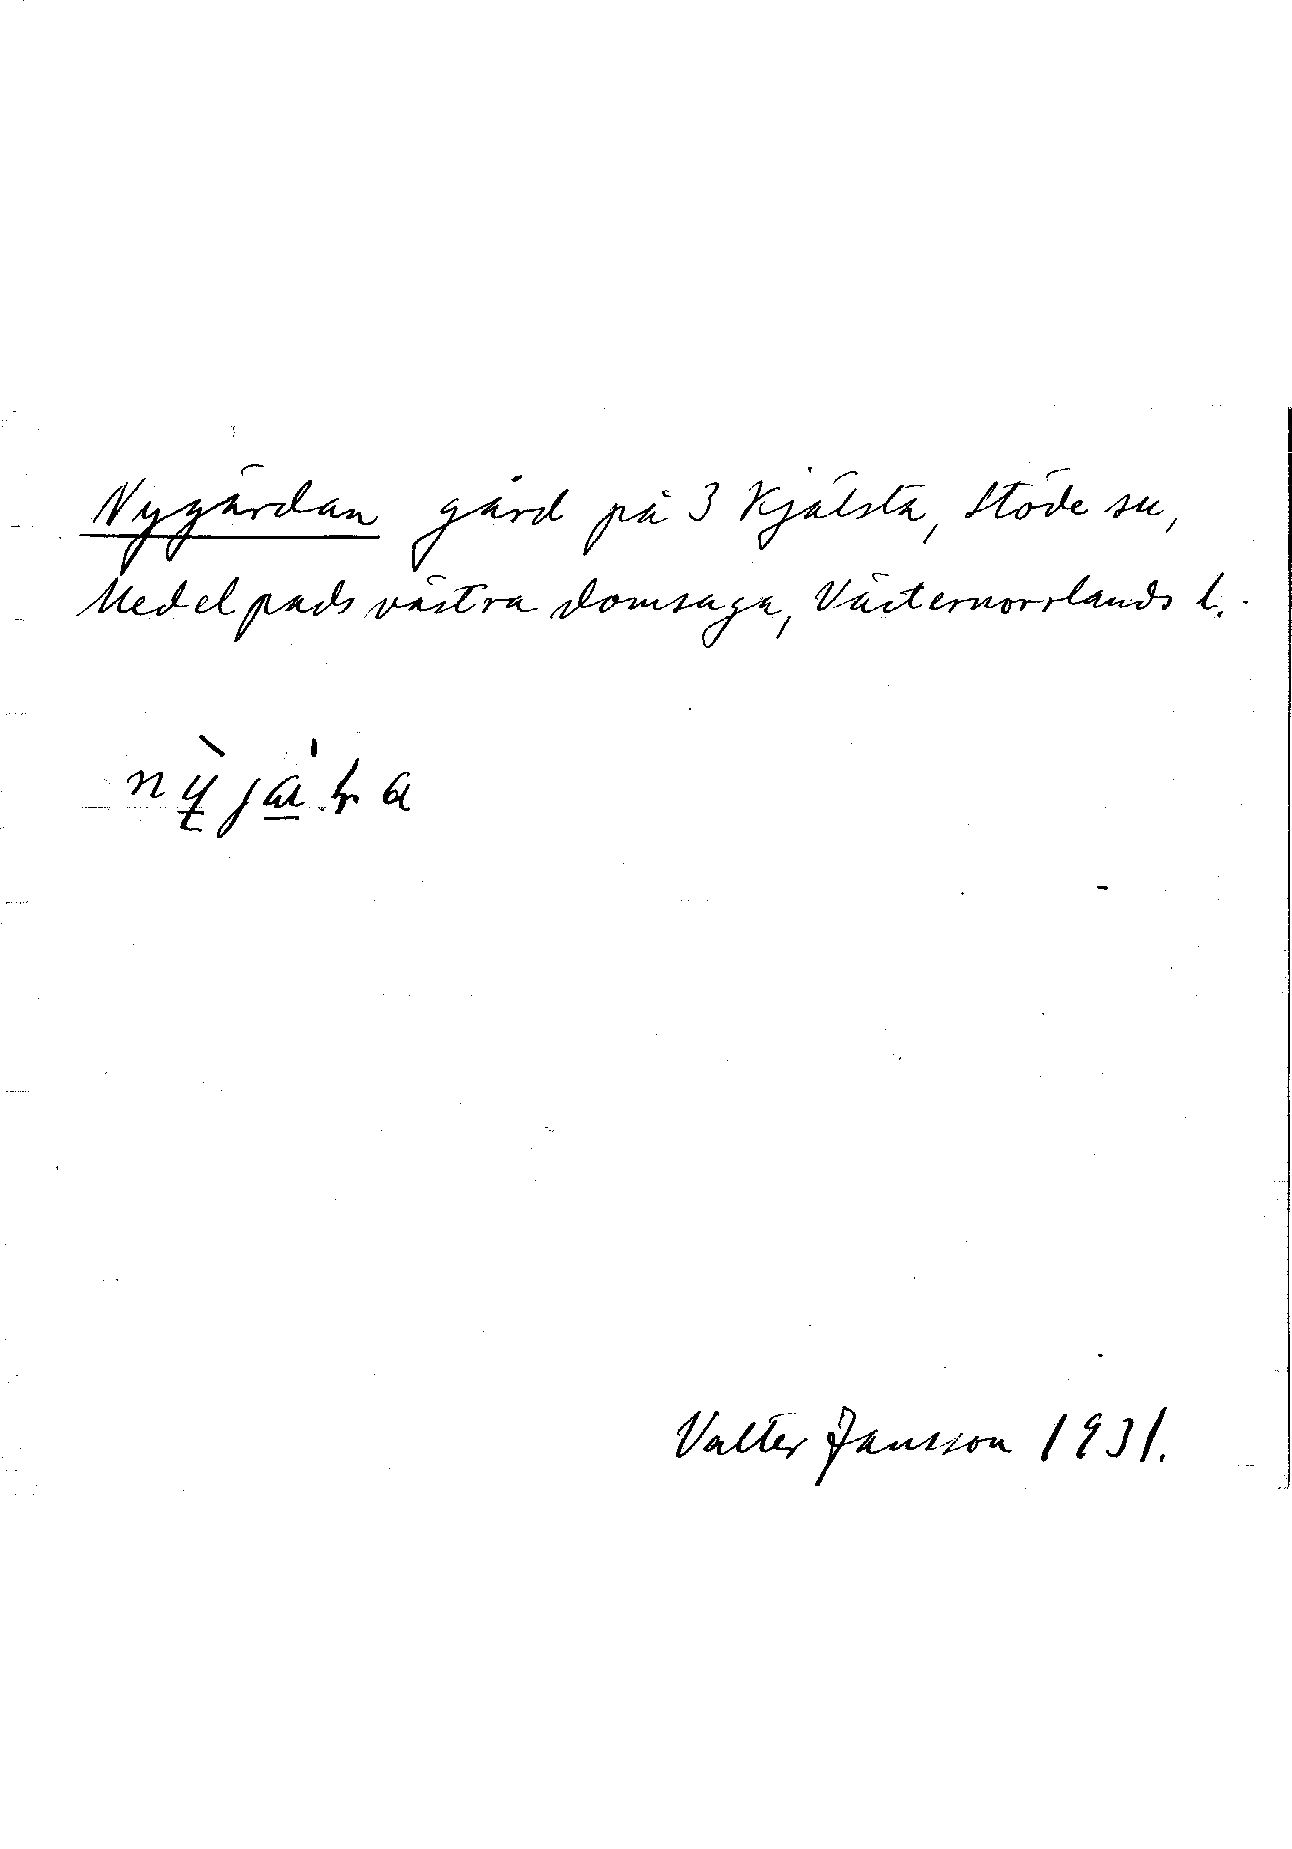 Nygärdan gård på 3 Kjälsta, Stöde sn,
Medelpads västra domsaga, Västernorrlands l.
Valter Jansson 1931.